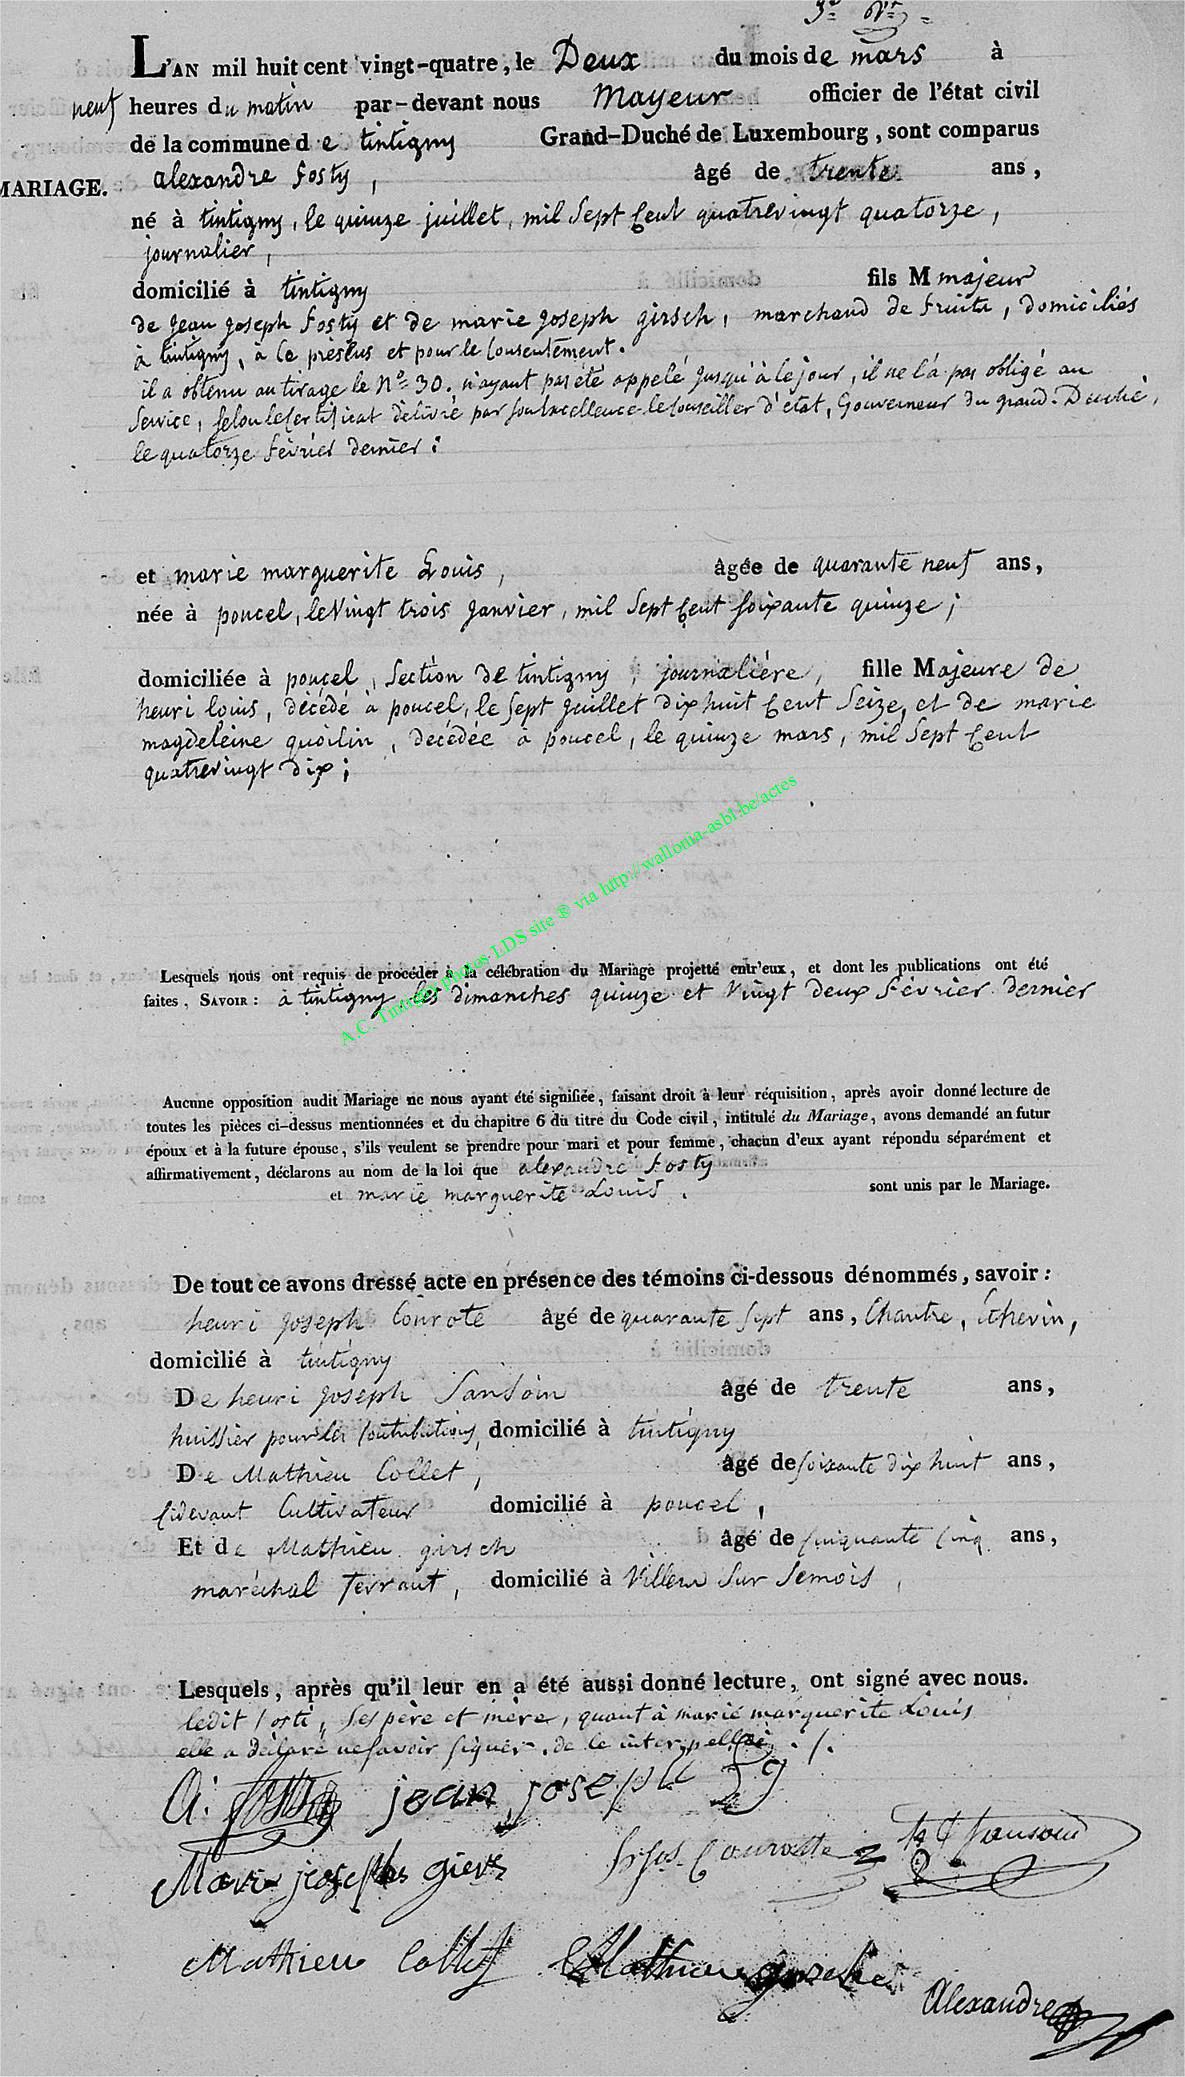 L'AN mil huit cent vingt-quatre, le Deux du mois de mars à
neuf heures du matin par-devant nous Mayeur officier de l'état civil
de la commune de tintigny Grand-Duché de Luxembourg, sont comparus
MARIAGE. alexandre fosty, âgé de trente ans,
né à tintigny, le quinze juillet, mil Sept Cent quatrevingt quatorze,
journalier,
domicilié à tintigny fils M majeur
de jean joseph fosty et de marie joseph girsch, marchand de fruits, domiciliés
à tintigny, à ce présens et pour le Consentement.
il a obtenu au tirage le No. 30. n'ayant pas été appelé jusqu'à ce jour, il ne l'a pas obligé au
Service, Selon le Certificat délivré par Son Excellence le Conseiller d'état, Gouverneur du grand-Duché,
le quatorze février dernier;
et marie marguerite Louis, âgée de quarante neuf ans,
née à poncel, le Vingt trois janvier, mil Sept Cent Soixante quinze;
domiciliée à poncel, Section de tintigny, journalière, fille Majeure de
henri louis, décédé à poncel, le Sept juillet dixhuit Cent Seize, et de marie
magdeleine quoilin, décédée à poncel, le quinze mars, mil Sept Cent
quatrevingt dix;
A.C. Tintigny photos LDS site ® via http://wallonia-asbl.be/actes
Lesquels nous ont requis de procéder à la célébration du Mariage projetté entr'eux, et dont les publications ont été
faites, SAVOIR : à tintigny les dimanches quinze et Vingt deux février dernier
Aucune opposition audit Mariage ne nous ayant été signifiée, faisant droit à leur réquisition, après avoir donné lecture de
toutes les pièces ci-dessus mentionnées et du chapitre 6 du titre du Code civil, intitulé du Mariage, avons demandé au futur
époux et à la future épouse, s'ils veulent se prendre pour mari et pour femme, chacun d'eux ayant répondu séparément et
affirmativement, déclarons au nom de la loi que alexandre fosty
et marie marguerite Louis. sont unis par le Mariage.
De tout ce avons dressé acte en présence des témoins ci-dessous dénommés, savoir :
henri joseph Conrote âgé de quarante Sept ans, Chantre, Echevin,
domicilié à tintigny
De henri joseph Sansoin âgé de trente ans,
huissier pour les Contributions, domicilié à tintigny
De Mathieu Collet, âgé de Soixante dix huit ans,
Cidevant Cultivateur domicilié à poncel,
Et de Mathieu girsch âgé de Cinquante Cinq ans,
maréchal ferrant, domicilié à Villers Sur Semois,
Lesquels, après qu'il leur en a été aussi donné lecture, ont signé avec nous.
ledit fosti, Ses père et mère, quant à marie marguerite Louis
elle a déclaré ne Savoir Signer, de ce interpellée ./.
A: fosty jean joseph
Marie joseph giers
Mathieu Collet Mathieu girsche
Alexandre